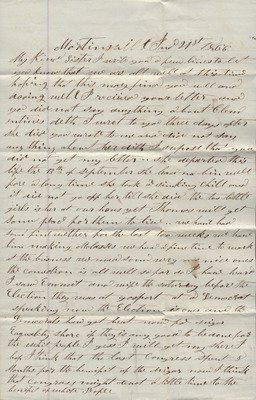 Martinsvill Ind 21st 1866
My Kind Sister I write you a few lines to let
you know that we are all well at this time
hoping that this may find you well and
doing well I recieved your letter and you
did not say anything about Clem
entines deth I wrot to you three days after
she died you wrote to me and did not say
any thing about her deth I supose that you
did not get my letter she departed this
life the 12th of September she had no bin well
fore a long time she took a sinking chill and
it did not go off her till she died the two little
girls is at our house yet Thomas will get
some place for them to live we have had
some find wether for the last two weeks we have
bin making Molasses we had a fine time to mark
at the business we mad some very nice ones
the conection is all well so far as I have heard
I saw Emmost and wife the saturday before the
Election they was at gosport at a Democrat
Speaking now the Election is over and the
Democrats have got beat now for niger
Equality shore if there is any good to be done for
the white people I gess I will get my share I
hop I think that the last Congress spent 8
Months for the benifit of the nigers now I think
that congress might devot a little time to the
benifit of white People